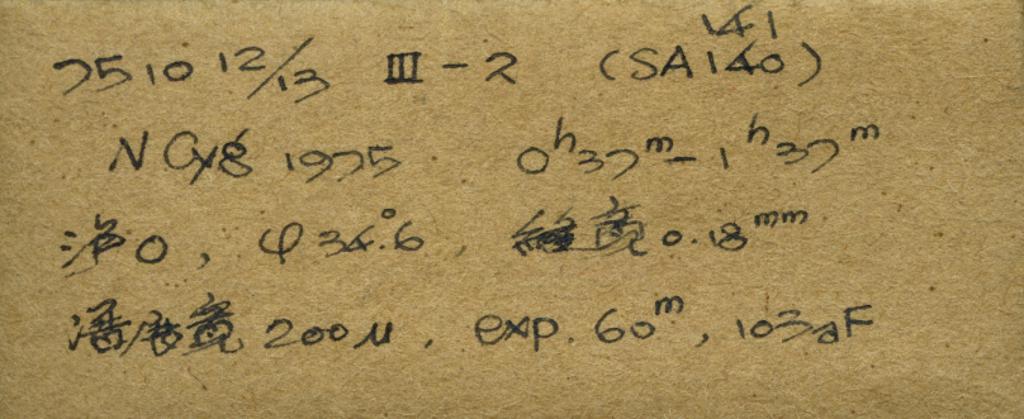 141
7510 12/13 III-2 (SA140)
N Cyg 1975 0h37m-1h37m
沪0, φ34.°6, 宽0.18mm
宽200μ, exp. 60m, 103aF